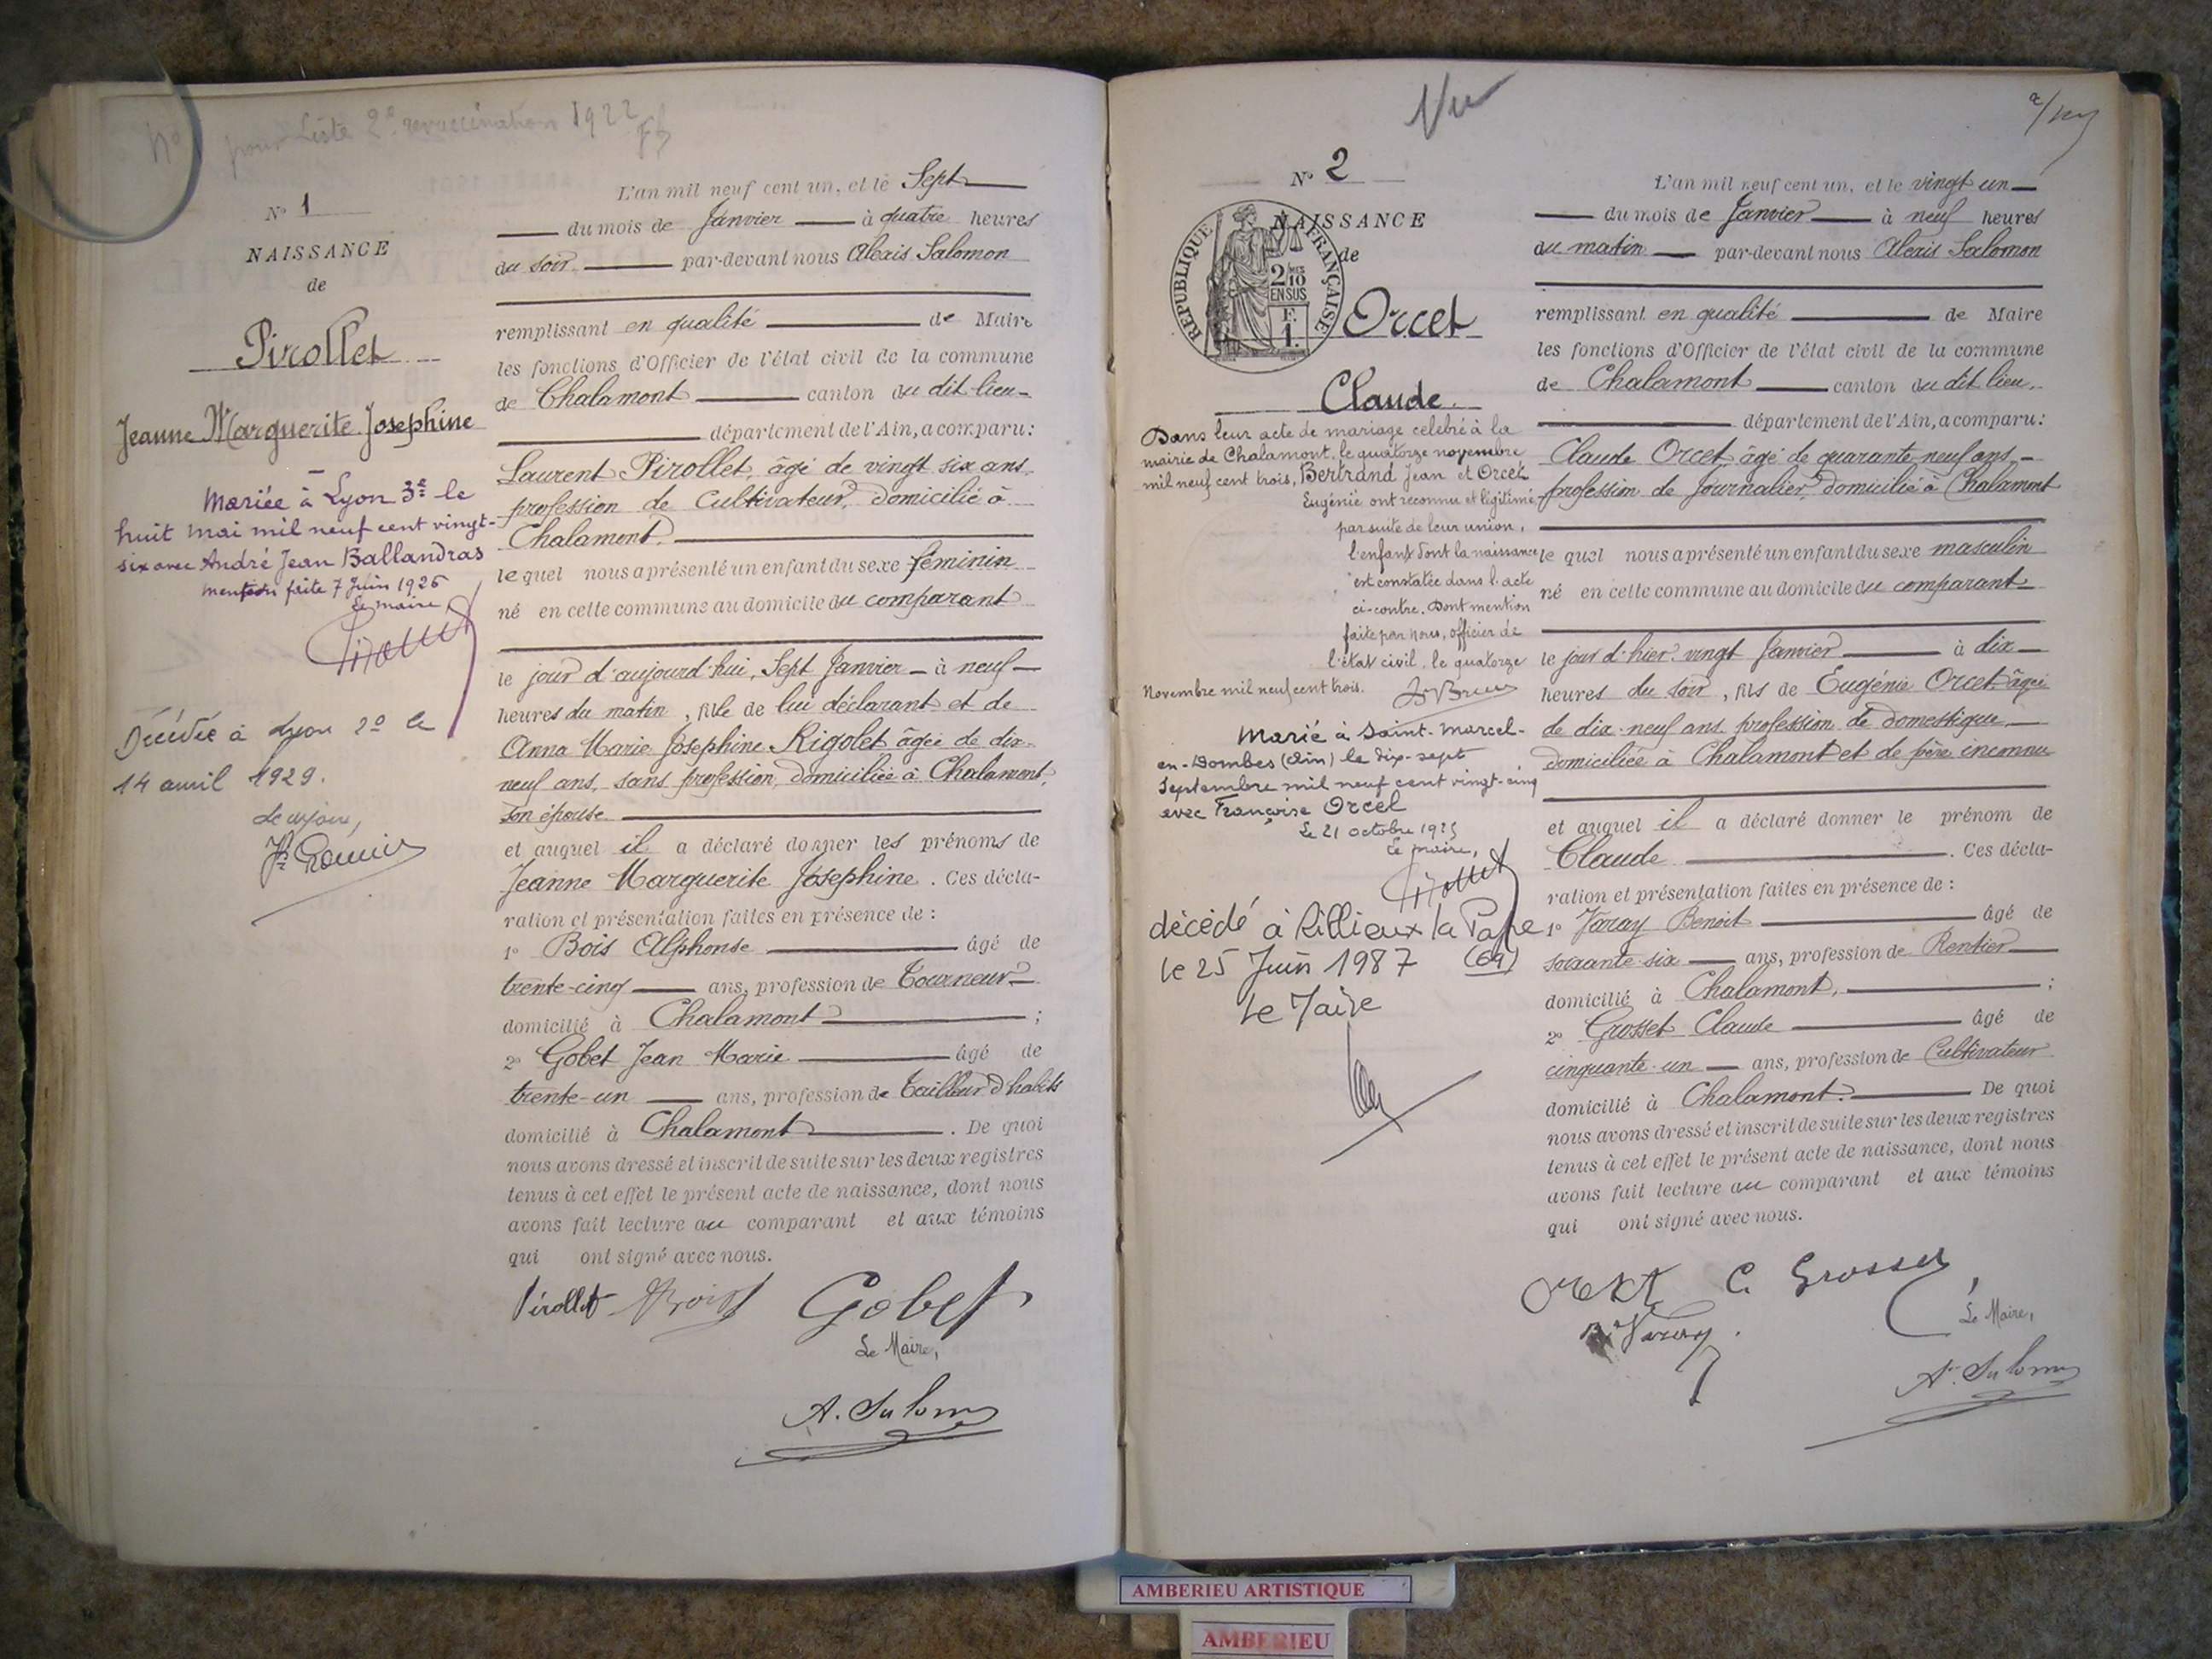 pour Liste 2e revaccination 1922
N° 1
NAISSANCE
de
Pirollet
Jeanne Marguerite Josephine
Mariée à Lyon 3e le
huit mai mil neuf cent vingt-
six avec André Jean Ballandras
mention faite 7 Juin 1926
Le maire
Décédée à Lyon 2e le
14 avril 1929.
L'an mil neuf cent un, et le Sept
du mois de Janvier à quatre heures
du soir par-devant nous Alexis Salomon
remplissant en qualité de Maire
les fonctions d'Officier de l'état civil de la commune
de Chalamont canton du dit lieu
département de l'Ain, a comparu :
Laurent Pirollet, âgé de vingt six ans
profession de Cultivateur, domicilié à
Chalamont.
le quel nous a présenté un enfant du sexe féminin
né en cette commune au domicile du comparant
le jour d'aujourd'hui, Sept Janvier à neuf
heures du matin, fille de lui déclarant et de
Anna Marie Josephine Rigolet âgée de dix-
neuf ans, sans profession, domiciliée à Chalamont,
son épouse
et auquel il a déclaré donner les prénoms de
Jeanne Marguerite Josephine. Ces décla-
ration et présentation faites en présence de :
1° Bois Alphonse âgé de
trente-cinq ans, profession de Tourneur
domicilié à Chalamont ;
2° Gobet Jean Marie âgé de
trente-un ans, profession de Tailleur d'habits
domicilié à Chalamont. De quoi
nous avons dressé et inscrit de suite sur les deux registres
tenus à cet effet le présent acte de naissance, dont nous
avons fait lecture au comparant et aux témoins
qui ont signé avec nous.
Pirollet Gobet
Le Maire,
A. Salomon
Vu
N° 2
NAISSANCE
de
REPUBLIQUE FRANÇAISE
2/10
EN SUS
F.
1.
Orcet
Claude.
Dans leur acte de mariage celebré à la
mairie de Chalamont, le quatorze novembre
mil neuf cent trois, Bertrand Jean et Orcet
Eugénie ont reconnu et légitimé
par suite de leur union,
l'enfant dont la naissance
est constatée dans l'acte
ci-contre. Dont mention
faite par nous, officier de
l'état civil, le quatorze
Novembre mil neuf cent trois.
Marié à Saint-Marcel-
en-Dombes (Ain) le dix-sept
Septembre mil neuf cent vingt-cinq
avec Françoise Orcel
Le 21 octobre 1925
Le maire,
décédé à Rillieux la Pape
le 25 Juin 1987 (69)
Le Maire
L'an mil neuf cent un, et le vingt un
du mois de Janvier à neuf heures
du matin par-devant nous Alexis Salomon
remplissant en qualité de Maire
les fonctions d'Officier de l'état civil de la commune
de Chalamont canton du dit lieu
département de l'Ain, a comparu :
Claude Orcet, âgé de quarante neuf ans
profession de Journalier, domicilié à Chalamont
le quel nous a présenté un enfant du sexe masculin
né en cette commune au domicile du comparant
le jour d'hier vingt Janvier à dix
heures du soir, fils de Eugénie Orcet âgée
de dix-neuf ans, profession de domestique
domiciliée à Chalamont et de père inconnu
et auquel il a déclaré donner le prénom de
Claude. Ces décla-
ration et présentation faites en présence de :
1° Varay Benoit âgé de
soixante six ans, profession de Rentier
domicilié à Chalamont, ;
2° Grosset Claude âgé de
cinquante-un ans, profession de Cultivateur
domicilié à Chalamont. De quoi
nous avons dressé et inscrit de suite sur les deux registres
tenus à cet effet le présent acte de naissance, dont nous
avons fait lecture au comparant et aux témoins
qui ont signé avec nous.
C. Grosset
Le Maire,
A. Salomon
AMBERIEU ARTISTIQUE
AMBERIEU